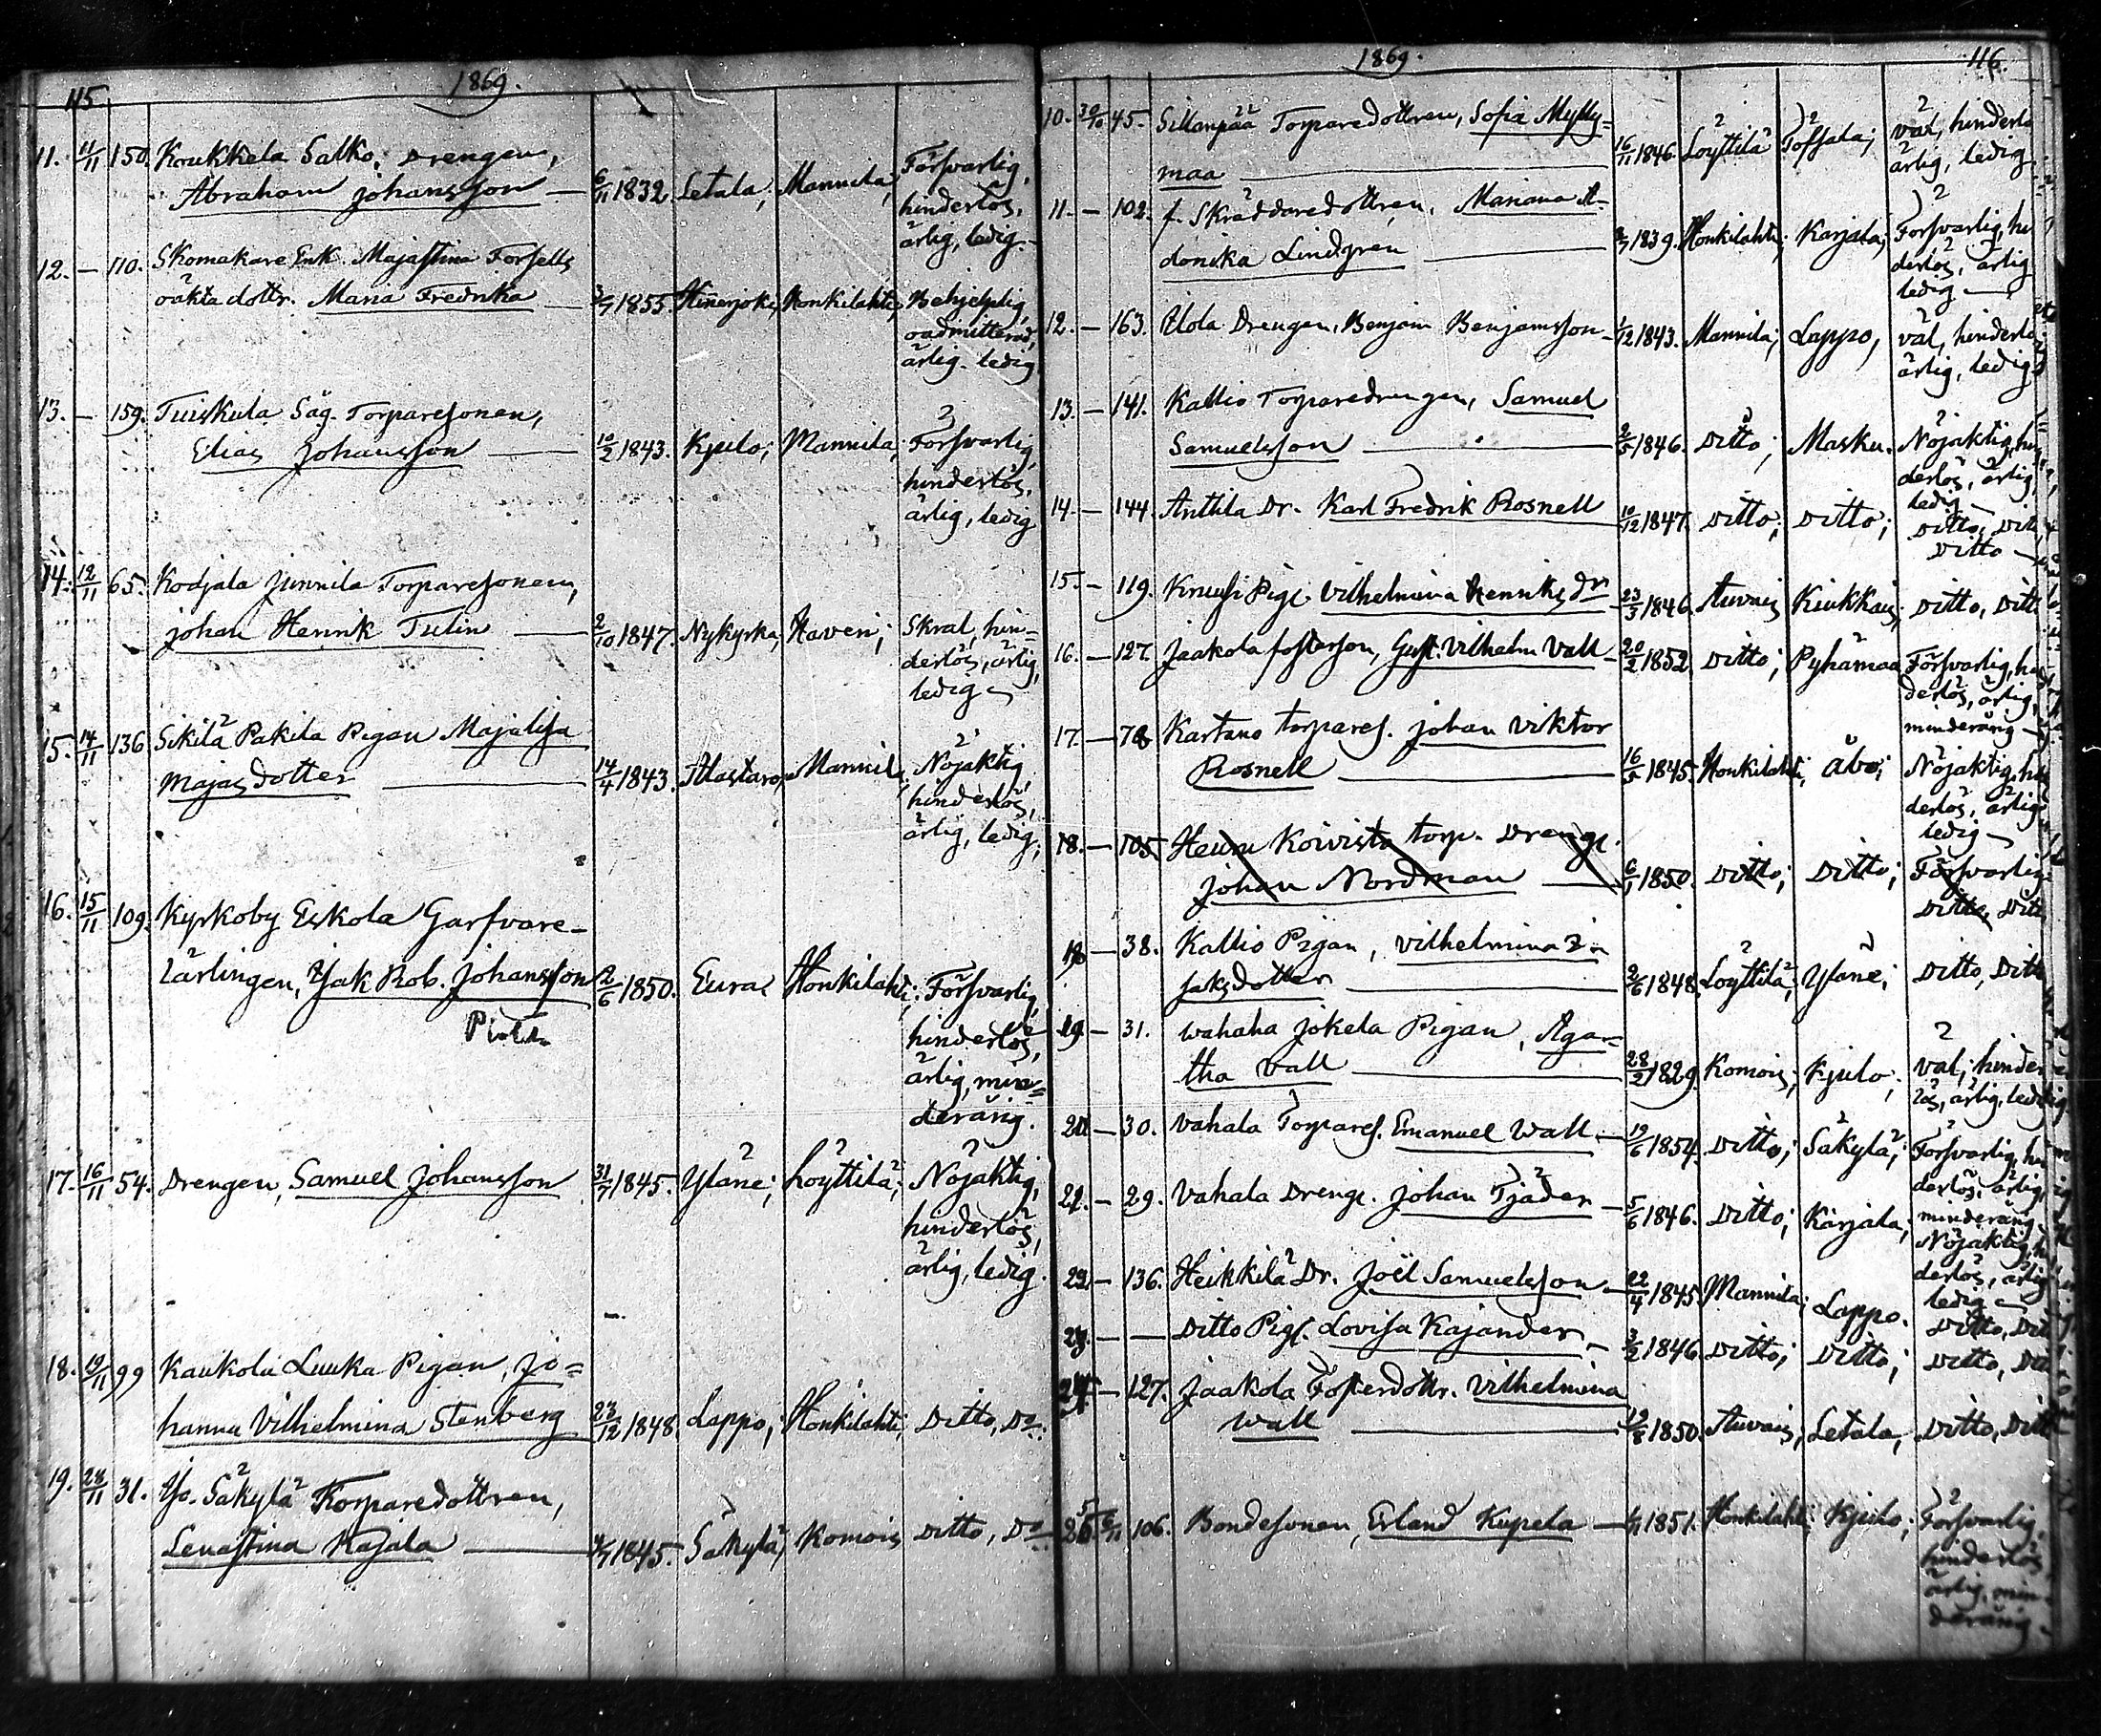 115
1869.
11. 11/11 150. Koukkela Salko, Drengen,
Abraham Johansson — 6/11 1832. Letala, Mannila, Försvarlig,
hinderlös,
ärlig, ledig.
12. — 110. Skomakare Enk. Majastina Forsells
oäkta dottr. Maria Fredrika — 1855. Hinerjoki, Honkilahti, Behjelplig,
oadmitterad,
ärlig. ledig
13. — 159. Tuiskula Säg. Torparesonen,
Elias Johansson — 10/2 1843. Kjulo; Mannila, Försvarlig,
hinderlös,
ärlig, ledig
14. 12/11 65. Kodjala Junnila Torparesonen,
Johan Henrik Tulin — 2/10 1847. Nykyrka, Haveri; Skral, hin=
derlös, ärlig,
ledig
15. 14/11 136 Sikilä Pakila Pigan Majalisa
Majasdotter — 14/4 1843. Alastaro, Mannila, Nöjaktig,
hinderlös,
ärlig, ledig;
16. 15/11 109. Kyrkoby Eskola Garfvare-
lärlingen, Isak Rob. Johansson 2/6 1850. Eura, Honkilahti; Försvarlig,
hinderlös,
ärlig, min=
derårig.
17. 16/11 54. Drengen, Samuel Johansson 31/7 1845. Yläne; Löyttilä; Nöjaktig,
hinderlös,
ärlig, ledig.
18. 19/11 99 Kaukola Luuka Pigan, Jo=
hanna Vilhelmina Stenberg 23/12 1848. Lappo; Honkilahti; Ditto, Do.
19. 28/11 31. Yso. Säkylä Torparedottren,
Lenastina Kajala — 1845. Säkylä, Komois ditto, Do
1869.
116.
10. 30/10 45. Sillanpää Torparedottren, Sofia Mylly=
maa — 16/11 1846. Löyttilä Tofsala; väl, hinderlö
ärlig, ledig
11. — 102. f. Skräddaredottren, Mariana A-
donika Lindgren — 1839. Honkilahti; Karjala; Försvarlig, hi
derlös, ärlig
ledig —
12. — 163. Ulola Drengen, Benjam Benjamsson — 1/12 1843. Mannila; Lappo, väl, hinderlö
ärlig, ledig
13. — 141. Kallio Torparedrengen, Samuel
Samuelsson — 2/5 1846. Ditto; Masku. Nöjaktig, hin
derlös, ärlig,
ledig
14. — 144. Anttila Dr. Karl Fredrik Rosnell 10/12 1847. Ditto; Ditto; Ditto, Dit
Ditto
15. — 119. Kruusi Pig. Vilhelmina Henriksdr 23/5 1846. Auvais Kiukkais, Ditto, Ditt
16. — 127. Jaakola fosterson, Gust. Vilhelm Vall — 20/2 1852 Ditto; Pyhämaa Försvarlig, hi
derlös, ärlig,
minderårig
17. — 78 Kartano torpares. Johan Viktor
Rosnell — 16/5 1845. Honkilahti; Åbo; Nöjaktig, hi
derlös, ärlig
ledig —
18. — 105. Heuru Koivisto torp. Drenge.
Johan Nordman — 6/1 1850. Ditto; Ditto; Försvarlig
Ditto, Dit
— 38. Kallio Pigan, Vilhelmina I-
saksdotter — 2/6 1848. Löyttilä; Yläne; Ditto, Ditt
19 — 31. Vahaha Jokela Pigan, Aga=
tha Vall — 28/2 1829 Komois; Kjulo; väl; hinder
lös, ärlig, ledig
20 — 30. Vahala Torpares. Emanuel Wall — 19/6 1854. Ditto; Säkylä; Försvarlig, hi
derlös, ärlig,
minderårig
21. — 29. Vahala Drenge. Johan Tjäder — 5/6 1846. Ditto; Karjala; Nöjaktig, h
derlös, ärlig
ledig
22 — 136. Heikkilä Dr. Joël Samuelsson — 22/4 1845 Mannila; Lappo. Ditto, Dit
23. — — Ditto Pig. Lovisa Kajander — 3/2 1846. Ditto; Ditto; Ditto, Dit
24 — 127. Jaakola Fosterdottr. Vilhelmina
Wall — 19/8 1850. Auvais, Letala, Ditto, Ditt
25 6/11 106. Bondesonen, Erland Kupela — 1851. Honkilahti; Kjulo; Försvarlig,
hinderlös,
ärlig, min-
derårig